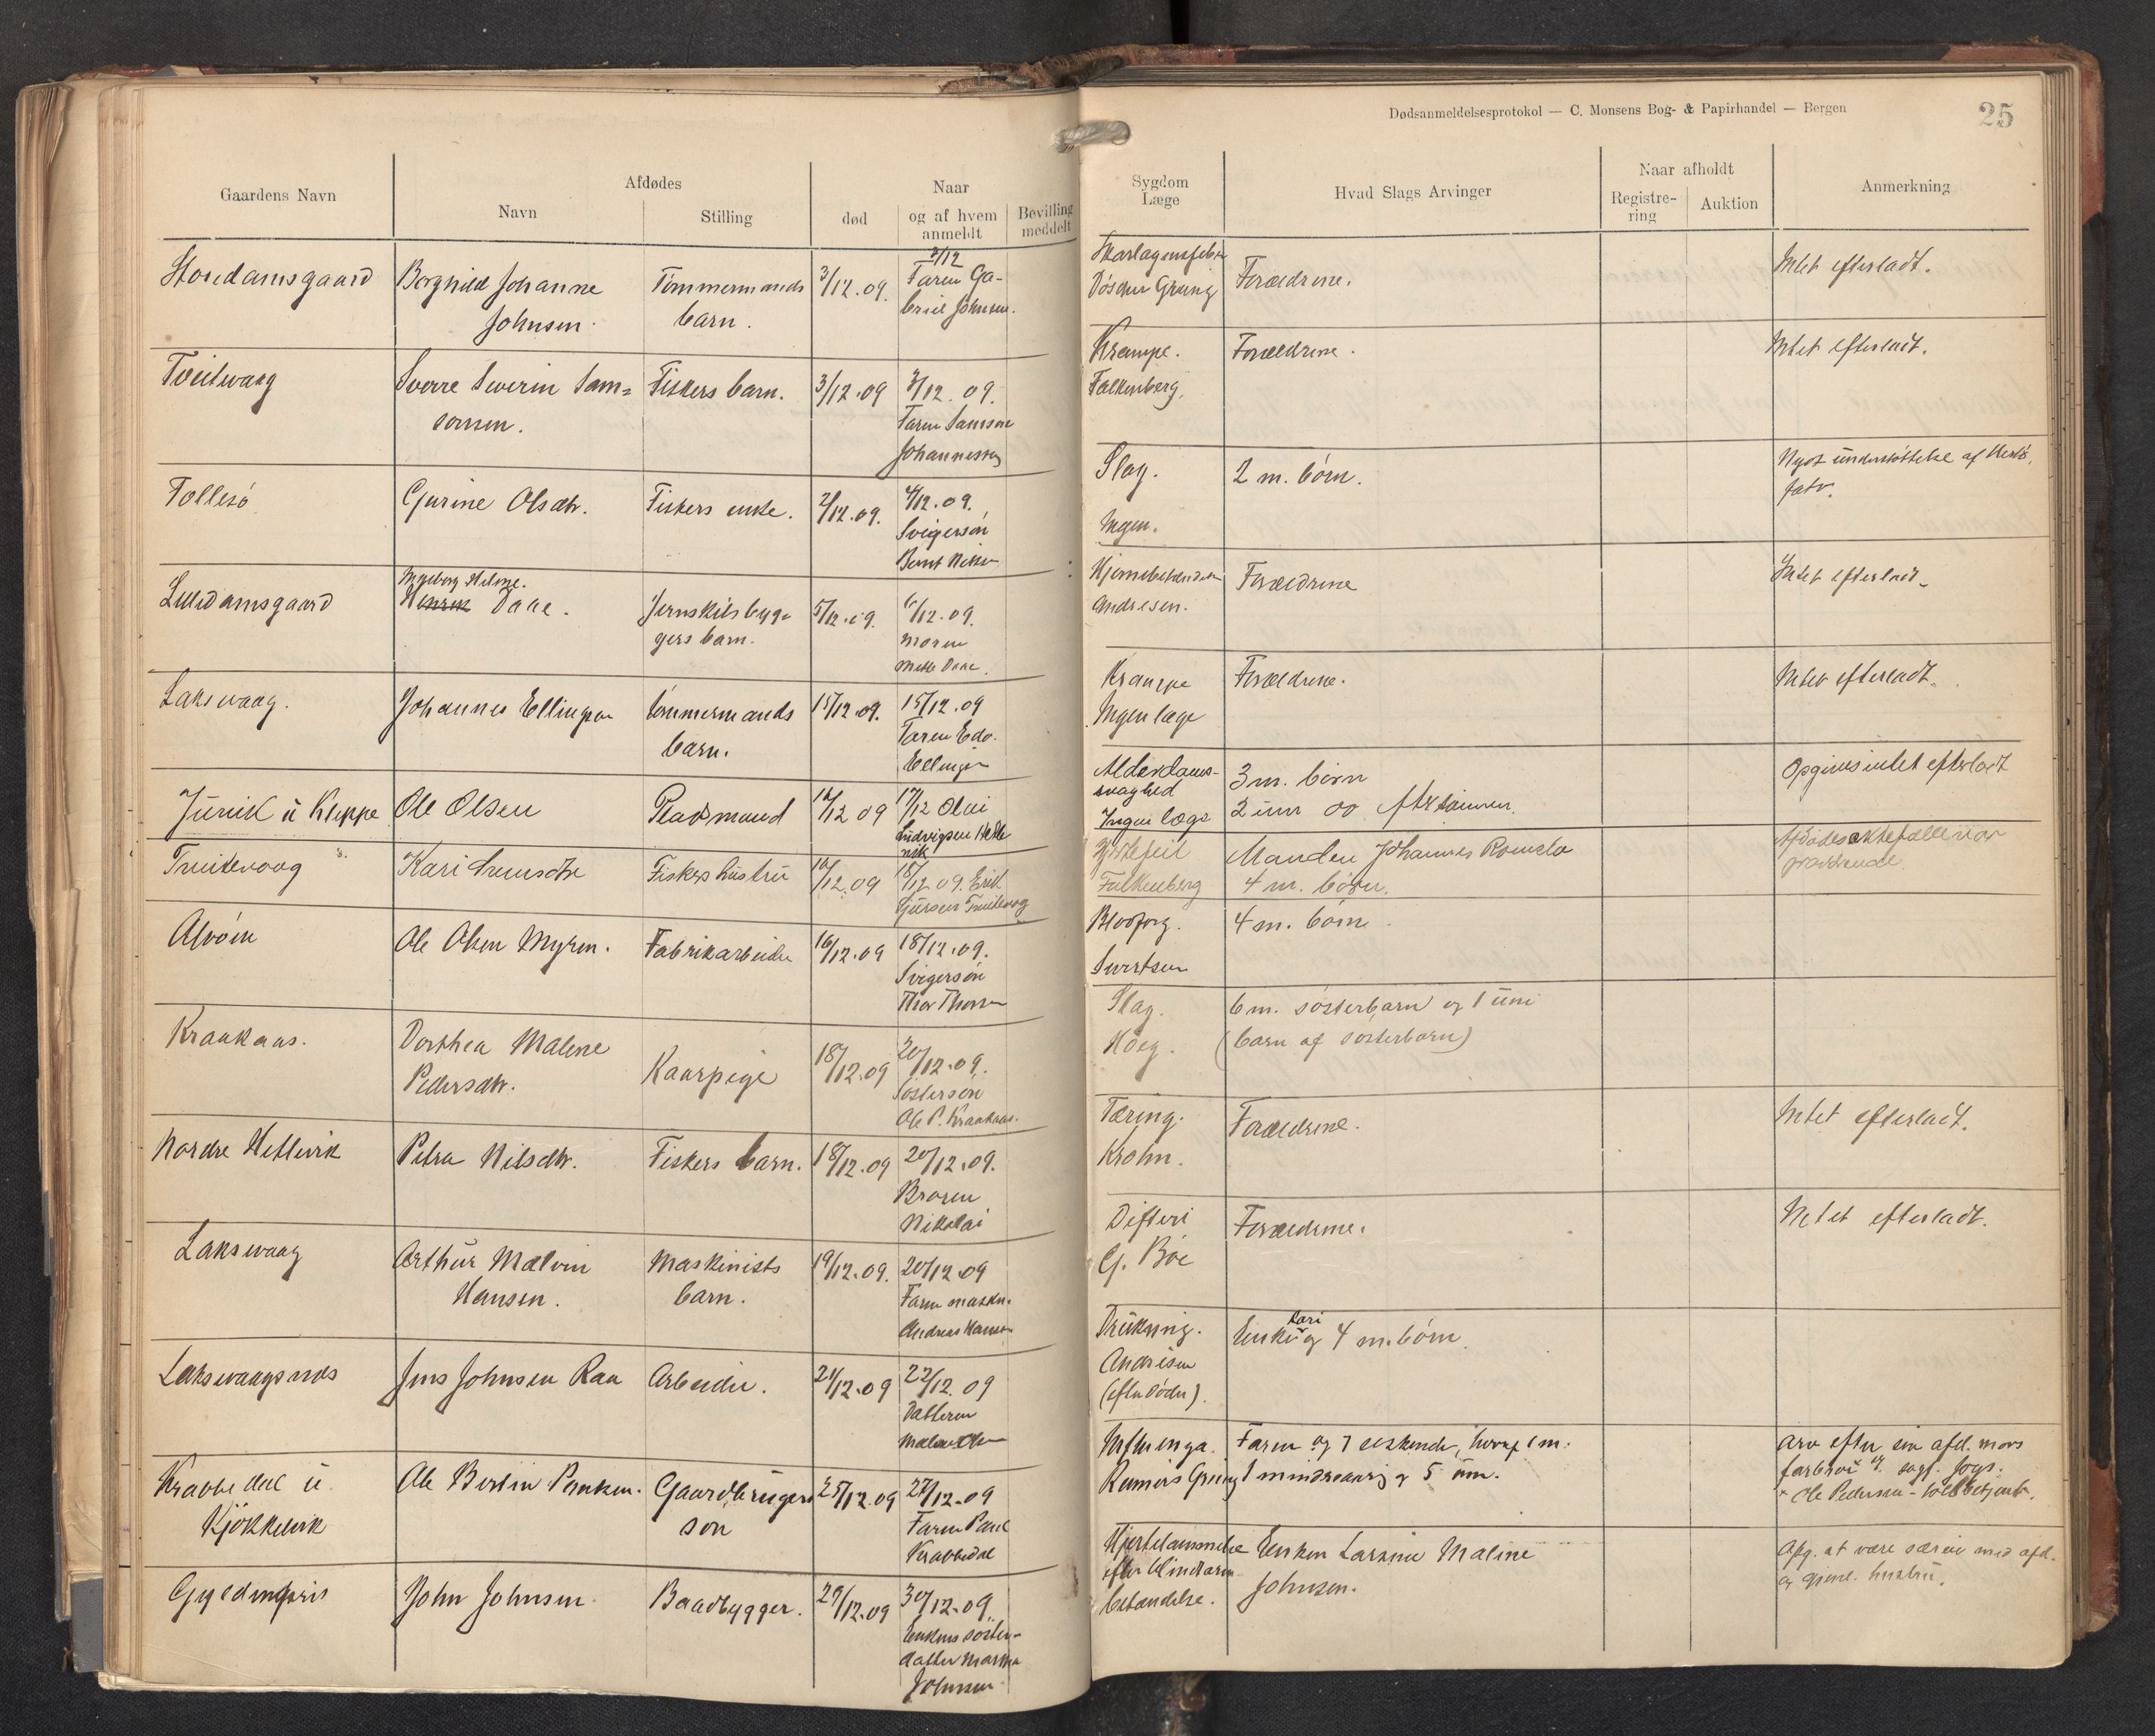 Dødsanmeldelsesprotokol — C. Monsens Bog- & Papirhandel — Bergen
25
Gaardens Navn
Afdødes
Navn
Stilling
død
Naar
og af hvem
anmeldt
Bevilling
meddelt
Sygdom
Læge
Hvad Slags Arvinger
Naar afholdt
Registre-
ring
Auktion
Anmerkning
Borghild Johanne
Johnsen.
Tømmermands
barn.
3/12.09.
Faren Ga-
briel Johnsen.
Skarlagensfeber
Grung
Forældrene.
Intet efterladt.
Sverre Severin Sam=
sonsen.
Fiskers barn.
3/12.09
3/12.09.
Faren Samson
Johannessen
Krampe.
Falkenberg.
Forældrene.
Intet efterladt.
Follesö
Gjurine Olsdtr.
Fiskers enke.
2/12.09.
4/12.09.
Svigersön
Slag.
Ingen.
2 m. börn.
Nydt understöttelse af
fatv.
Damsgaard
Ingeborg Helene.
Daae.
Jernskibsbyg-
gers barn.
5/12.09.
6/12.09.
Moren
Mette Daae.
Andresen.
Forældrene
Intet efterladt
Laksevaag.
Johannes Ellingsen
tömmermands
barn.
15/12.09.
15/12.09
Faren Edv.
Ellingsen
Krampe
Ingen læge
Forældrene.
Intet efterladt.
Ole Olsen
Pladsmand
16/12 09
17/12
Alderdoms-
svaghed
Ingen læge
3 m. börn
2 um do
Opgives intet efterladt
Kari
Fiskers hustru
16/12.09
18/12 09. Erik
Hjertefeil
Falkenberg
Manden Johannes
4 m. börn.
Afdødes ektefælle var
Alvöen
Ole Olsen Myren.
Fabrikarbeider
16/12.09
18/12.09.
Svigersön
Thor Thorsen
Sivertsen
4 m. börn.
Kraakaas.
Dorthea Malene
Pedersdtr.
Kaarpige
18/12.09
20/12.09.
Söstersön
Ole P. Kraakaas.
Slag.
Höeg.
6 m. sösterbarn og 1 um
(barn af sösterbarn)
Nordre Hetlevik
Petra Nilsdtr.
Fiskers barn.
18/12.09
20/12.09.
Broren
Nikolai
Tæring.
Krohn.
Forældrene.
Intet efterladt.
Laksevaag
Arthur Malvin
Hansen.
Maskinists
barn.
19/12.09.
20/12.09
Faren maskn.
Andreas Hansen
Difteri
G. Böe
Forældrene.
Intet efterladt.
Laksevaagsnes
Jens Johnsen Raa
Arbeider.
21/12.09
22/12.09
Datteren
Drukning.
Andresen
(efter döden).
Kari
Enke og 4 m. börn.
Krabbedal u.
Kjökkelvik
Ole Bertin Paulsen.
Gaardbrugers
sön
25/12.09
27/12.09
Faren Paul
Krabbedal
Influenza.
Reimers Grung
Faren og 7 söskende, hvoraf 1 m.
1 mindreaarig og 5 um.
Arv efter sin afd. mors
farbror
Ole Pedersen - toldbetjent.
Gyldenpris
John Johnsen
Baadbygger.
29/12.09
30/12.09.
Enkens söster-
datter Martha
Johnsen
Hjertelammelse
efter blindtarm-
betændelse.
Enken Larsine Maline
Johnsen.
Opg. at være særeie med afd.
og gjenl. hustru.